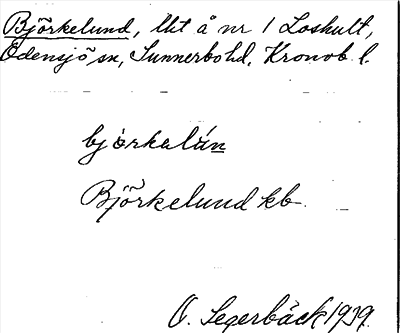 Björkelund, lht å nr 1 Loshult,
Odensjö sn, Sunnerbo hd, Kronob l.
björkalún
Björkelund kb.
O. Segerbäck 1939.